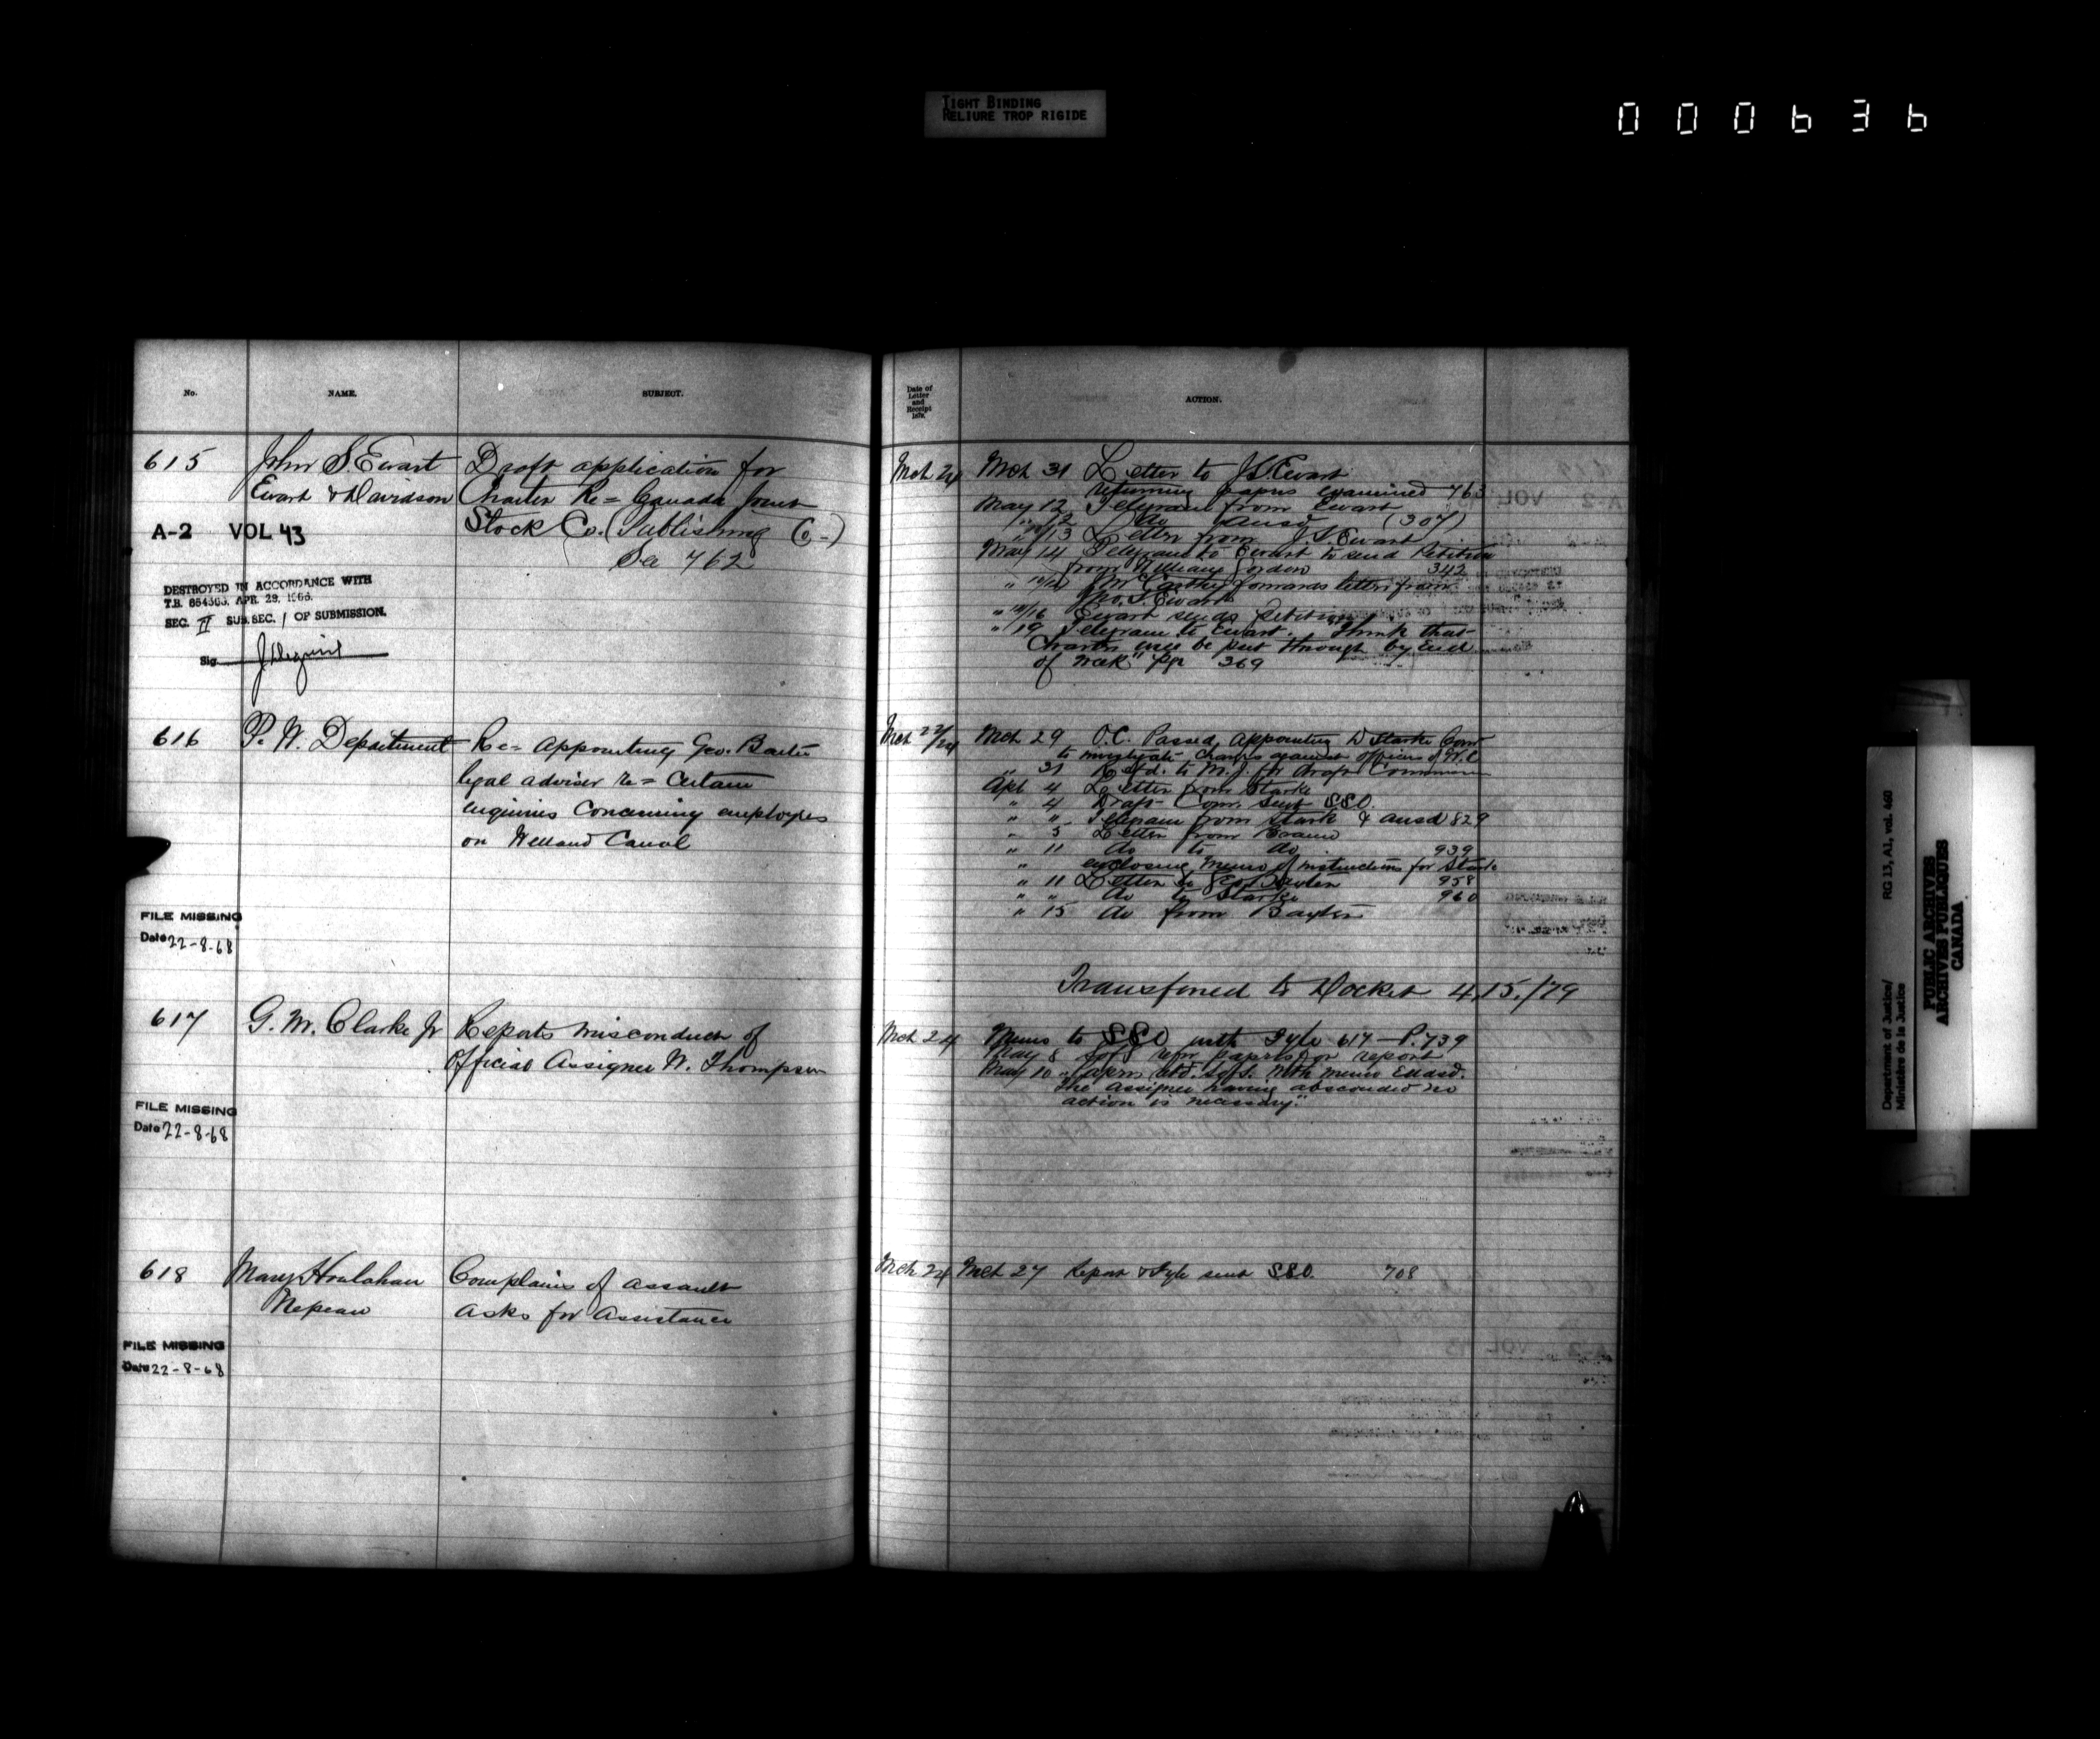 TIGHT BINDING
RELIURE TROP RIGIDE
000636
No.
NAME.
SUBJECT.
615
John S. Ewart
Ewart & Davidson
Draft application for
Charter Re= Canada Joint
Stock Co. (Publishing Co-)
See 762
A-2 VOL 43
DESTROYED IN ACCORDANCE WITH
T.B. 654363, APR. 29, 1966.
SEC. II SUB. SEC. 1 OF SUBMISSION.
Sig
616
P. W. Department
Re= Appointing Geo. Baxter
legal adviser re= Certain
enquiries Concerning employes
on Welland Canal
FILE MISSING
Date 22-8-68
617
G. M. Clarke Jr
Reports misconduct of
Official Assignee W. Thompson
FILE MISSING
Date 22-8-68
618
Mary Houlahan
Nepean
Complains of assault
asks for Assistance
FILE MISSING
Date 22-8-68
Date of
Letter
and
Receipt
187
ACTION.
Mch 24
Mch 31 Letter to J.S. Ewart
returning papers examined 763
May 12 Telegram from Ewart
" 12 do ansd (307)
" 13 Letter from J.S. Ewart
May 14 Telegram to Ewart to send Petition
from William Gordon 342
McCarthy forwards letter from
Jno. S. Ewart
" Ewart sends Petition
" 19 Telegram to Ewart. "Think that
Charter will be put through by end
of week" 369
Mch 22/24
Mch 29 O.C. Passed, appointing D Starke Comr
to investigate Charges against officers of W.C
" 31 Refd. to M.J. for draft Commission
Apl 4 Letter from Starke
" 4 Draft Comn. sent SSO.
" " Telegram from Stark & ansd 829
" 5 Letter from Braun
" 11 do to do 939
" enclosing memo of instructions for Stark
" 11 Letter to Geo Baxter 958
" " do to Starke 960
" 15 do from Baxter
Transferred to Docket 415./79
Mch 24
Memo to SSO with Fyle 617 - P. 739
May 8 retn papers for report
May 10 papers retd. with memo Endsd.
"The assignee having absconded no
action is necessary."
Mch 24
Mch 27 Report & Fyle sent SSO. 708
Department of Justice/
Ministère de la Justice
RG 13, A1, vol. 460
PUBLIC ARCHIVES
ARCHIVES PUBLIQUES
CANADA